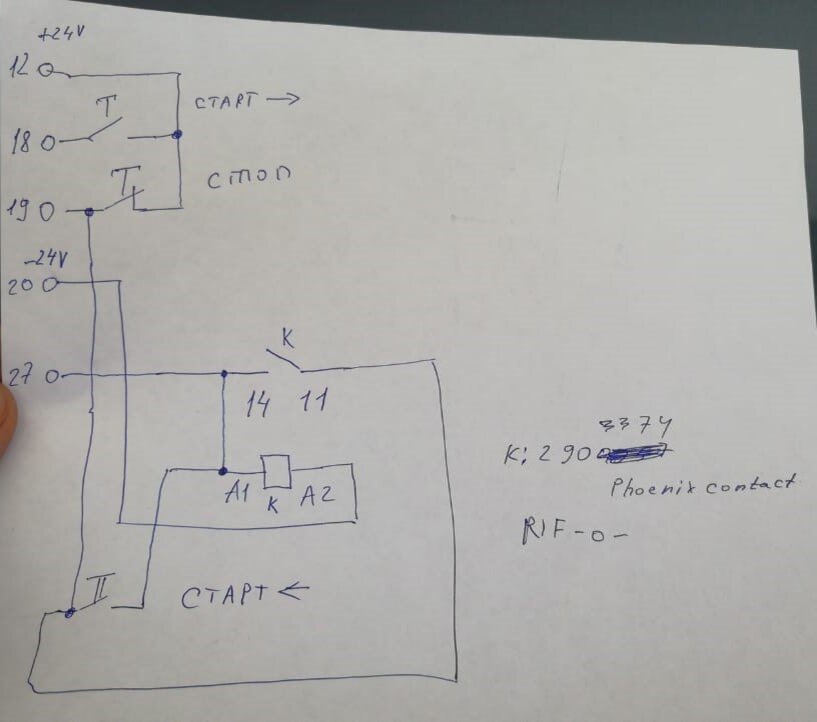 +24V
12
T
СТАРТ →
18
T
СТОП
19
-24V
20
K
27
14 11
3374
K: 290
Phoenix contact
A1 K A2
RIF-0-
СТАРТ ←